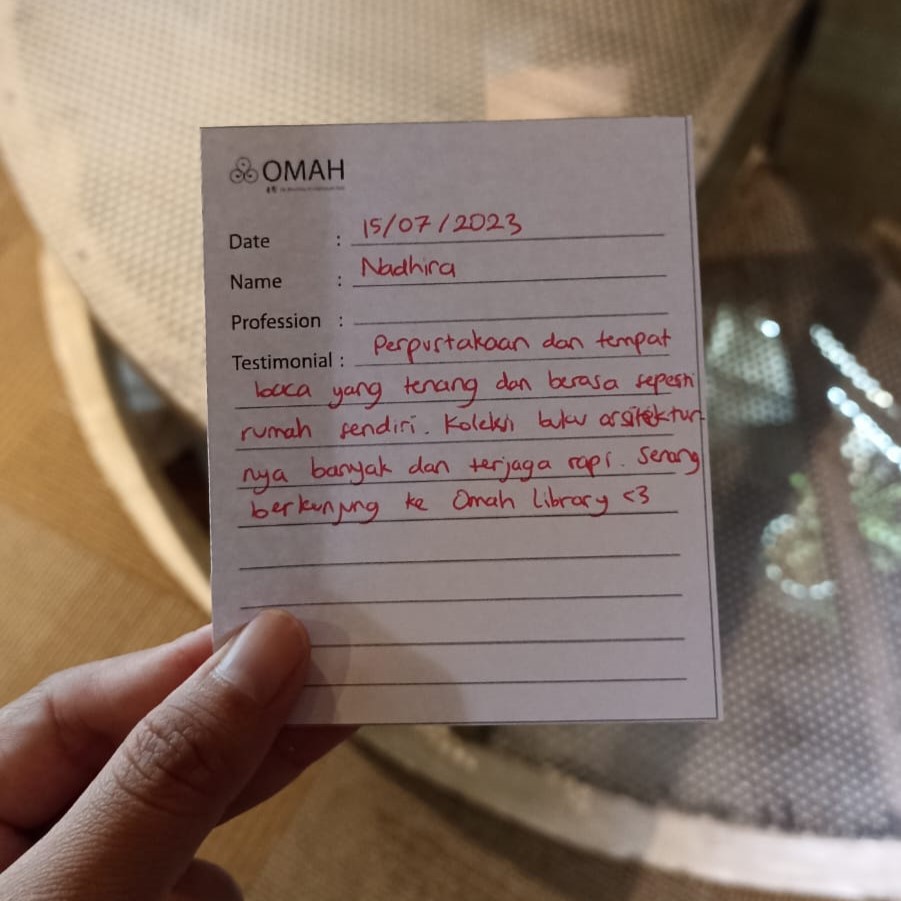 OMAH
Date : 15/07/2023
Name : Nadhira
Profession :
Testimonial : Perpustakaan dan tempat
baca yang tenang dan berasa seperti
rumah sendiri. Koleksi buku arsitektur
nya banyak dan terjaga rapi. Senang
berkunjung ke Omah Library <3